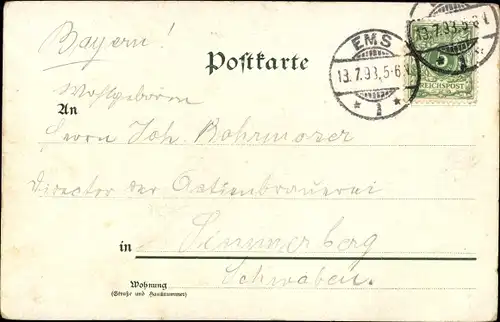 Bayern!
Postkarte
EMS
13.7.93,5-6N.
* 1 *
13.7.93,5-6
5
REICHSPOST
Wohlgeboren
An
Herrn Joh. Bohrmoser
Director der Actienbrauerei
in Simmerberg
Schwaben.
Wohnung
(Straße und Hausnummer)